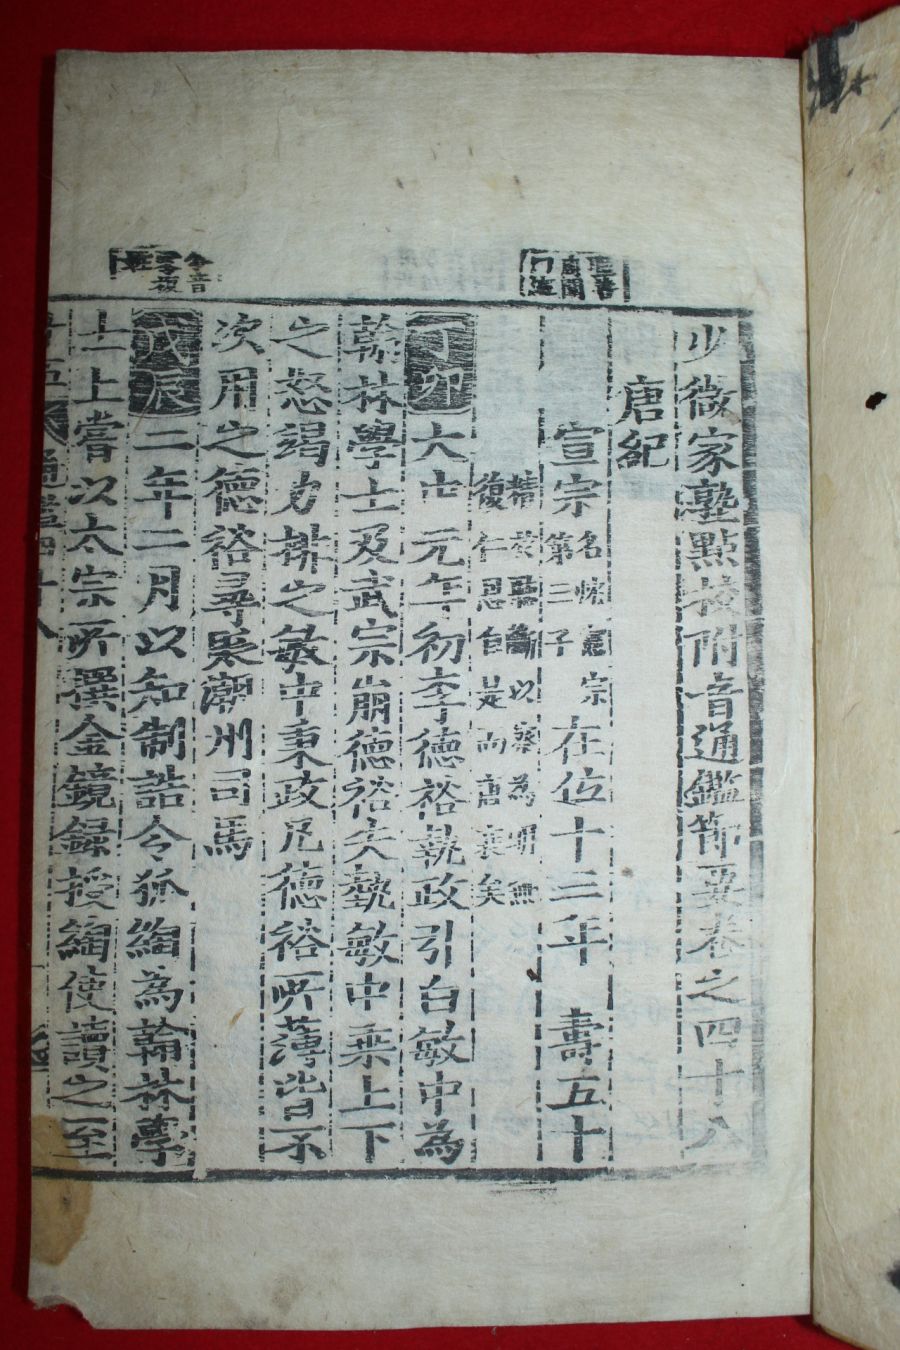 少微家塾點校附音通鑑節要卷之四十八
唐紀
宣宗名忱憲宗第三子在位十三年 壽五十
精於聽斷以察為明無
復仁恩自是而唐衰矣
丁卯大中元年初李德裕執政引白敏中為
翰林學士及武宗崩德裕失勢敏中乗上下
之怒竭力排之敏中秉政凡德裕所薄皆不
次用之德裕尋貶潮州司馬
戊辰二年二月以知制誥令狐綯為翰林學
士上嘗以太宗所撰金鏡錄授綯使讀之至
通鑑四十八